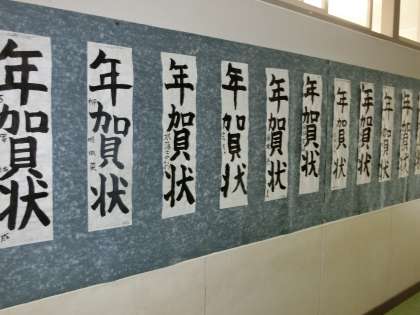 年賀状
年賀状
年賀状
年賀状
年賀状
年賀状
年賀状
年賀状
年賀状
年賀状